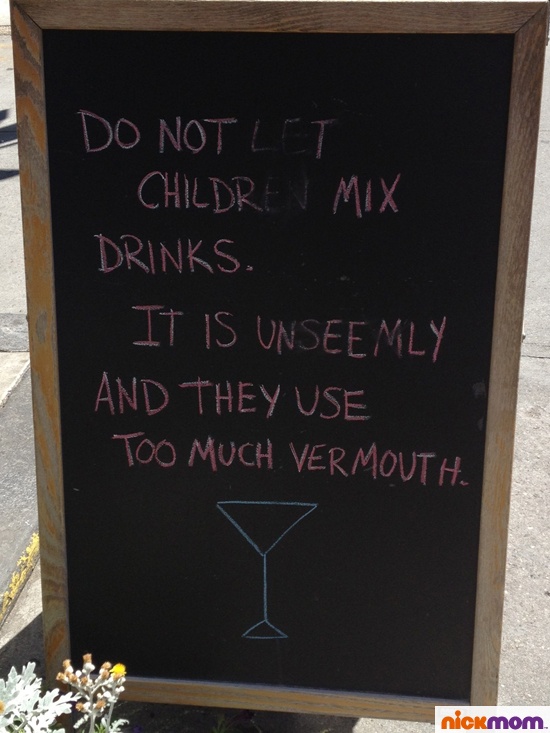 DO NOT LET
CHILDREN MIX
DRINKS.
IT IS UNSEEMLY
AND THEY USE
TOO MUCH VERMOUTH.
nickmom.